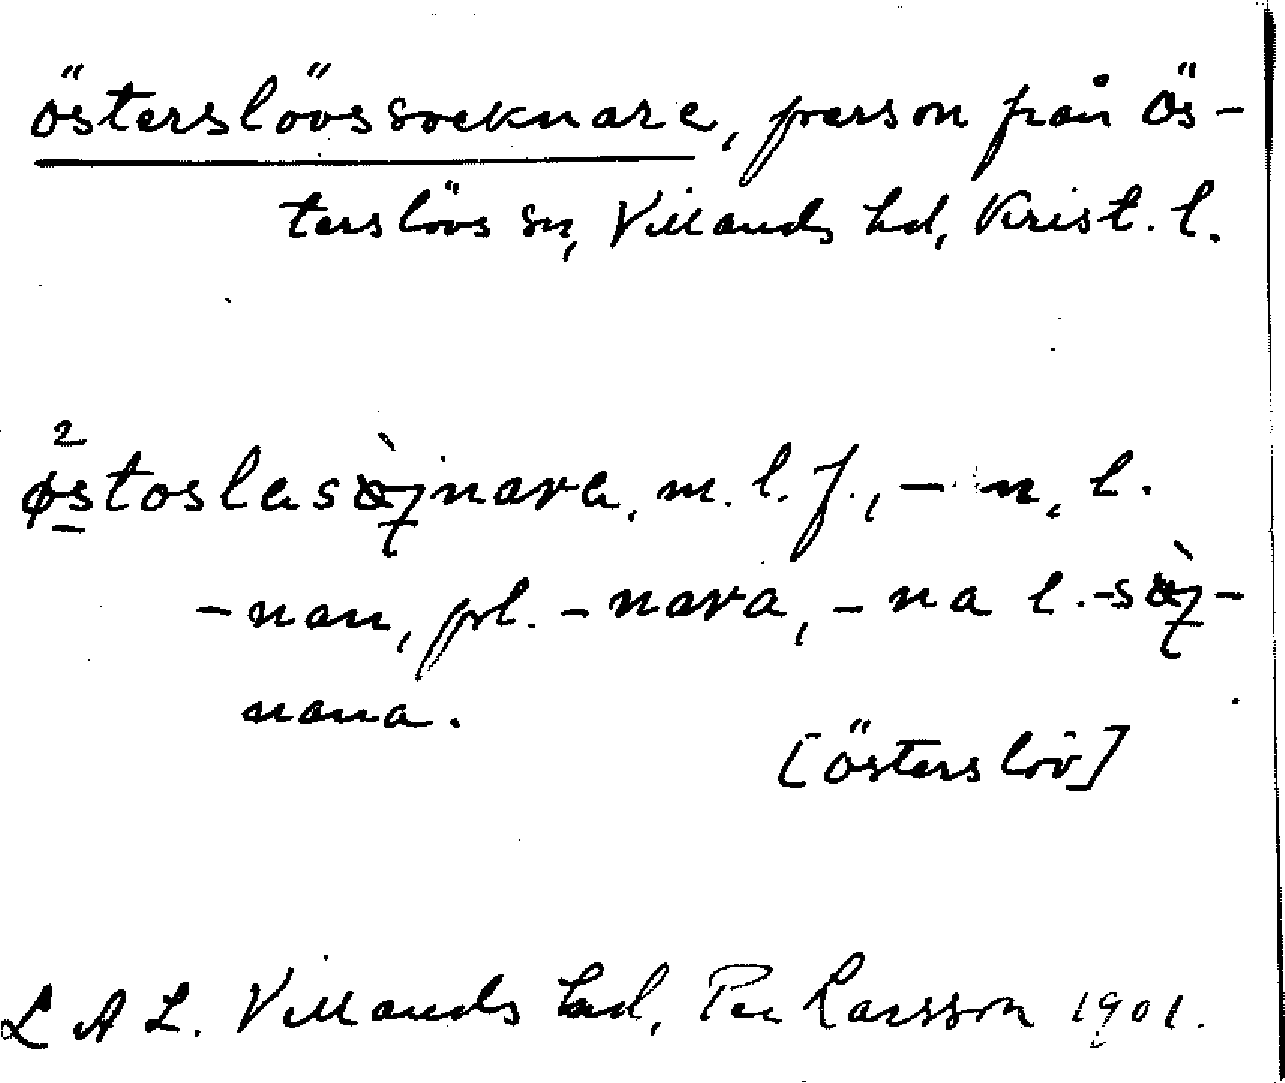 österslövssocknare, person från Ös-
terslövs sn, Villands hd, Krist. l.
m. l. f., – n, l.
-nan, pl. -nara, -na l.
nana.
[Österslöv]
L A L. Villands hd, Per Larsson 1901.